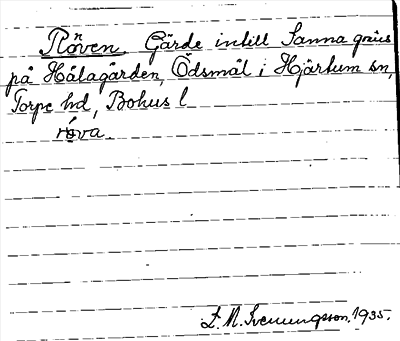 Röven. Gärde intill Sanna gräns
på Hålagården, Ödsmål i Hjärtum sn,
Torpe hd, Bohus l
röva.
L. M. Svenungsson. 1935.